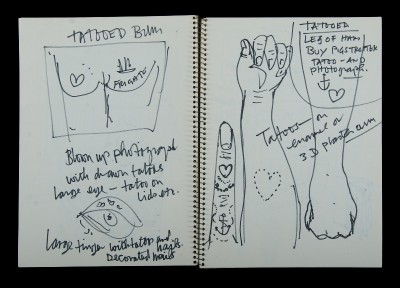 TATOOED Bum
FRIGATE
Blown up photograph
with drawn tattoos
Large eye – tattoo on
lids etc.
Large finger with tatoo and
Decorated
TATOOED
LEG OF HAM
BUY PIGS TROTTER
TATOO – AND
photograph.
Tattoos – on
enormous
3D plaster cum